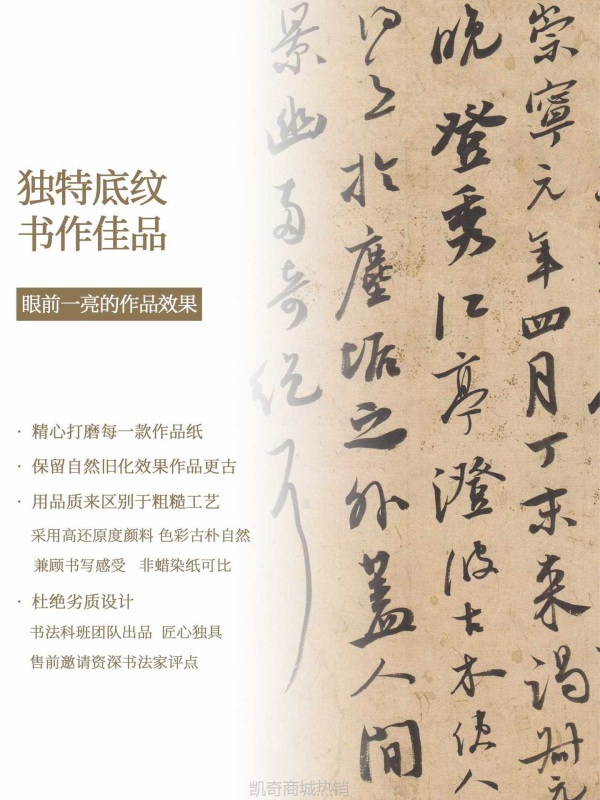 独特底纹
书作佳品
眼前一亮的作品效果
· 精心打磨每一款作品纸
· 保留自然旧化效果作品更古
· 用品质来区别于粗糙工艺
采用高还原度颜料 色彩古朴自然
兼顾书写感受 非蜡染纸可比
· 杜绝劣质设计
书法科班团队出品 匠心独具
售前邀请资深书法家评点
崇寧元年四月丁未來謁
晚登秀江亭澄波古木使人
得之於塵垢之外蓋人間
景幽奇絕
凯奇商城热销